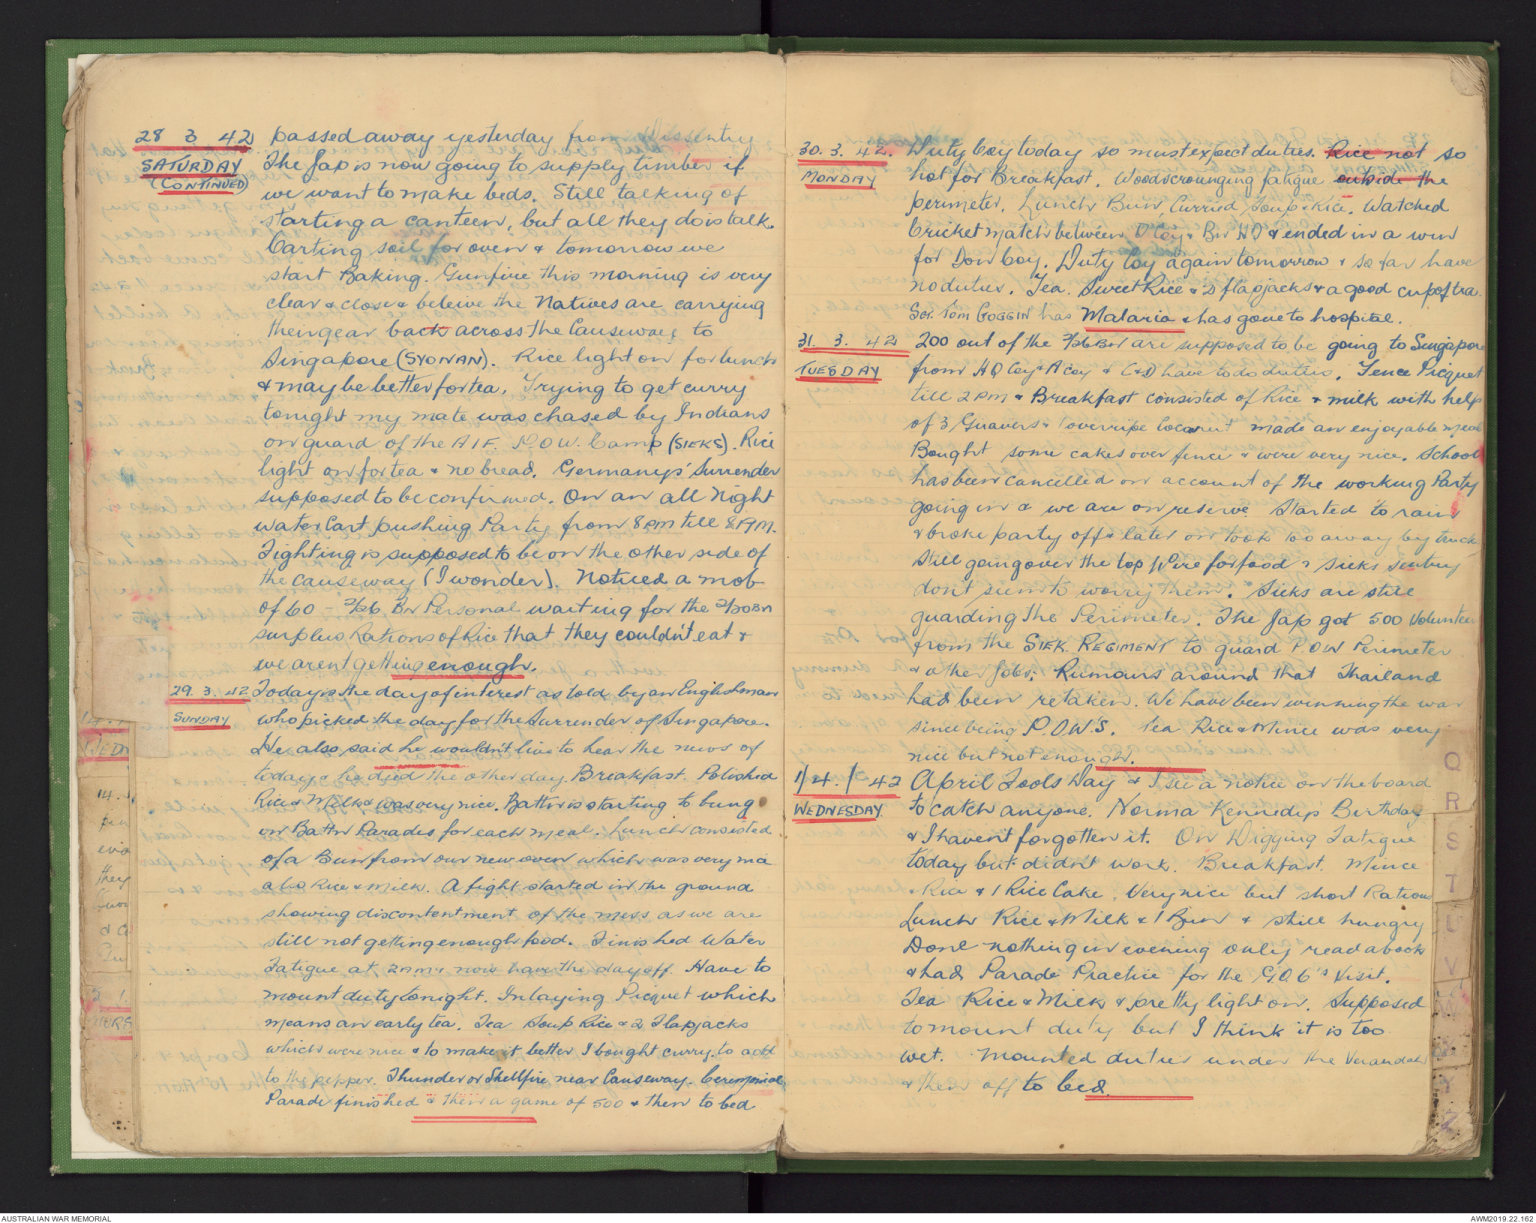 28 3 42 passed away yesterday from Dissentry
SATURDAY The Jap is now going to supply timber if
(CONTINUED) we want to make beds. Still talking of
starting a canteen, but all they do is talk.
Carting soil for oven & tomorrow we
start Baking. Gunfire this morning is very
clear & close & beleive the Natives are carrying
their gear back across the Causeway to
Singapore (SYONAN). Rice light on for lunch
& may be better for tea. Trying to get curry
tonight my mate was chased by Indians
on guard of the A.I.F. P.O.W. Camp (SIEKS). Rice
light on for tea & no bread. Germany's Surrender
supposed to be confirmed. On an all Night
Water Cart pushing Party from 8 PM till 8 AM.
Fighting is supposed to be on the other side of
the causeway (I wonder). Noticed a mob
of 60 - 2/26 Bn Personal waiting for the 2/30 BN
surplus Rations of Rice that they couldn't eat &
we arent getting enough.
29. 3. 42 Today is the day of interest as told by an Englishman
SUNDAY who picked the day for the Surrender of Singapore.
He also said he wouldn't live to hear the news of
today & he died the other day. Breakfast. Polished
Rice & Milk & was very nice. Battn is starting to bung
on Battn Parades for each meal. Lunch consisted
of a Bun from our new oven which was very nice
also Rice & Milk. A fight started in the ground
showing discontentment of the mess as we are
still not getting enough food. Finished Water
Fatigue at 2 AM & now have the day off. Have to
mount duty tonight. Inlaying Picquet which
means an early tea. Tea Soup Rice & 2 Flapjacks
which were nice & to make it better I bought curry to add
to the pepper. Thunder or Shellfire near Causeway. Ceremonial
Parade finished & then a game of 500 & then to bed
30. 3. 42. Duty Coy today so must expect duties. Rice not so
MONDAY hot for Breakfast. Woodscrounging fatigue outside the
perimeter. Lunch Bun, Curried Soup & Rice. Watched
Cricket match between D Coy & Bn HQ & ended in a win
for Don Coy. Duty Coy again tomorrow & so far have
no duties. Tea. Sweet Rice & 2 flapjacks & a good cup of tea.
Sgt. Tom GOGGIN has Malaria & has gone to hospital.
31. 3. 42 200 out of the 2/26 BN are supposed to be going to Singapore
TUESDAY from HQ Coy & A Coy & C & D have to do duties. Fence Picquet
till 2 PM & Breakfast consisted of Rice & milk with help
of 3 Guavers & 1 overripe Coconut made an enjoyable meal
Bought some cakes over fence & were very nice. School
has been cancelled on account of the working Party
going in & we are on reserve Started to rain
& broke party off & later on took 100 away by truck
Still going over the top Wire for food & Sieks Sentry
don't seem to worry them. Sieks are still
guarding the Perimeter. The Jap got 500 Volunteers
from the SIEK REGIMENT to guard P.O.W Perimeter
& other jobs. Rumours around that Thailand
had been retaken. We have been winning the war
since being P.O.W'S. Tea Rice & Mince was very
nice but not enough.
1/4./42 April Fools Day & I see a notice on the board
WEDNESDAY to catch anyone. Norma Kennedys Birthday
& I havent forgotten it. On Digging Fatigue
today but didn't work. Breakfast. Mince
& Rice & 1 Rice Cake. Very nice but short Rations
Lunch Rice & Milk & 1 Bun & still hungry
Done nothing in evening only read a book
& had Parade Practice for the G.O.C's Visit.
Tea Rice & Milk & pretty light on. Supposed
to mount duty but I think it is too
wet. Mounted duties under the Verandah
& then off to bed.
Q
R
S
T
U
V
W
Y
Z
AUSTRALIAN WAR MEMORIAL
AWM2019.22.162